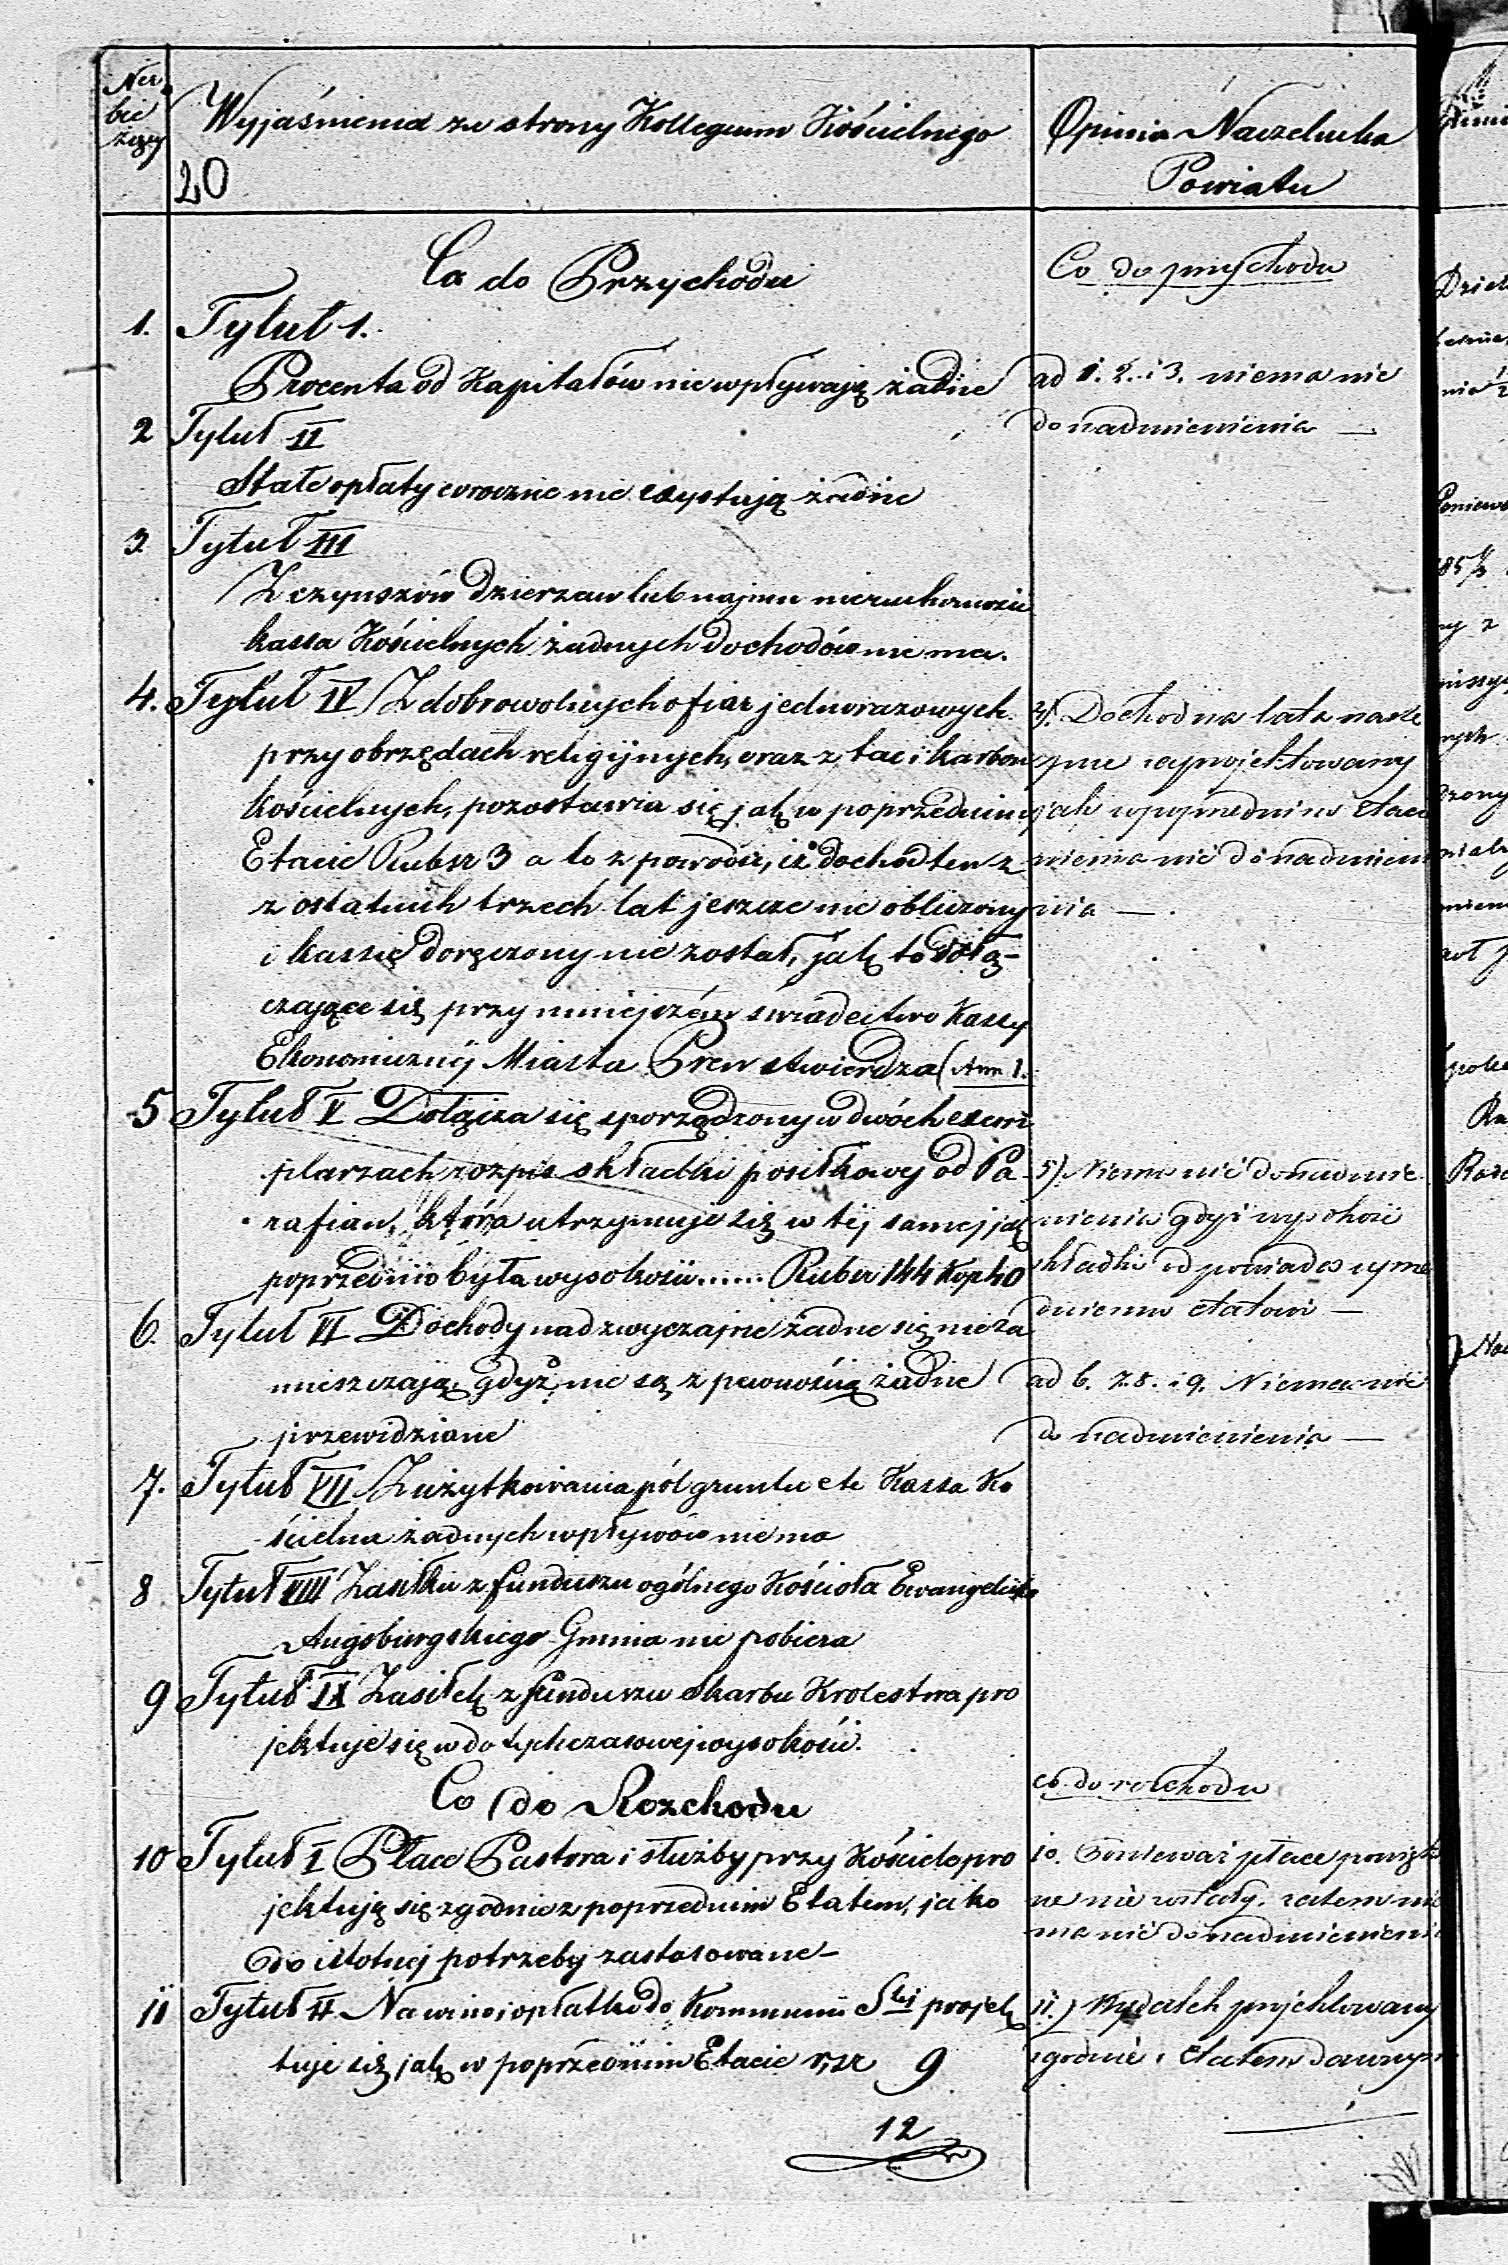 Ner
bie
żący
Wyjaśnienia ze strony Kollegium Kościelnego
20
Opinia Naczelnika
Powiatu
Co do Przychodu
1. Tytuł 1.
Procenta od Kapitałów nie wpływają żadne
2 Tytuł II
Stałe opłaty coroczne nie exystują żadne
3. Tytuł III
Z czynszów Dzierzaw lub najmu nieruchomości
kassa Kościelnych żadnych dochodów nie ma.
4. Tytuł IV Z dobrowolnych ofiar jednorazowych
przy obrzędach religijnych, oraz z tac i karbon
kościelnych, pozostawia się jak w poprzednim
Etacie Rubsr 3 a to z powodu, iż dochod ten z
z ostatnich trzech lat jeszcze nie obliczony
i kassie doręczony nie został, jak to dołą-
czające się przy niniejszém świadectwo Kassy
Ekonomicznéj Miasta Pren stwierdza (Ann 1.
5 Tytuł V Dołącza się sporządzony w dwóch exem
plarzach rozpis składki posiłkowej od Pa
rafian, która utrzymuje się w téj samej jak
poprzednio była wysokości...... Rubsr 144 Kop 40
6. Tytuł VI Dochody nadzwyczajne żadne się nie za
mieszczają, gdyż nie są z pewnością żadne
przewidziane
7. Tytuł VII Z użytkowania pól gruntu etc Kassa Ko
ścielna żadnych wpływów nie ma
8 Tytuł VIII Zasiłku z funduszu ogólnego Kościoła Ewangelicko
Augsburgskiego Gmina nie pobiera
9 Tytuł IX Zasiłek z funduszu Skarbu Krolestwa pro
jektuje się w dotychczasowej wysokości.
Co do Rozchodu
10 Tytuł I Płace Pastora i służby przy Kościele pro
jektują się zgodnie z poprzednim Etatem, jako
do istotnej potrzeby zastosowane –
11 Tytuł II Na wino i opłatki do Kommunii Stej projek
tuje się jak w poprzednim Etacie r,sr 9
12
Co do przychodu
ad 1. 2. i 3. niema nic
do nadmienienia —
4). Dochod na lata nastę
pne wyprojektowany
jak w poprzednim etacie
niema nic do nadmienie
nia —.
5) Niema nic do nadmie
nienia gdyż wysokość
składki odpowiada uprze
dniemu etatowi —
ad 6. 7. 8. i 9. Niema nic
do nadmienienia —
co do rozchodu
10. Ponieważ płace powiększo
ne nie zostały, zatem nie
ma nic do nadmienienia
11.) Wydatek projektowany
zgodnie z etatem dawnym